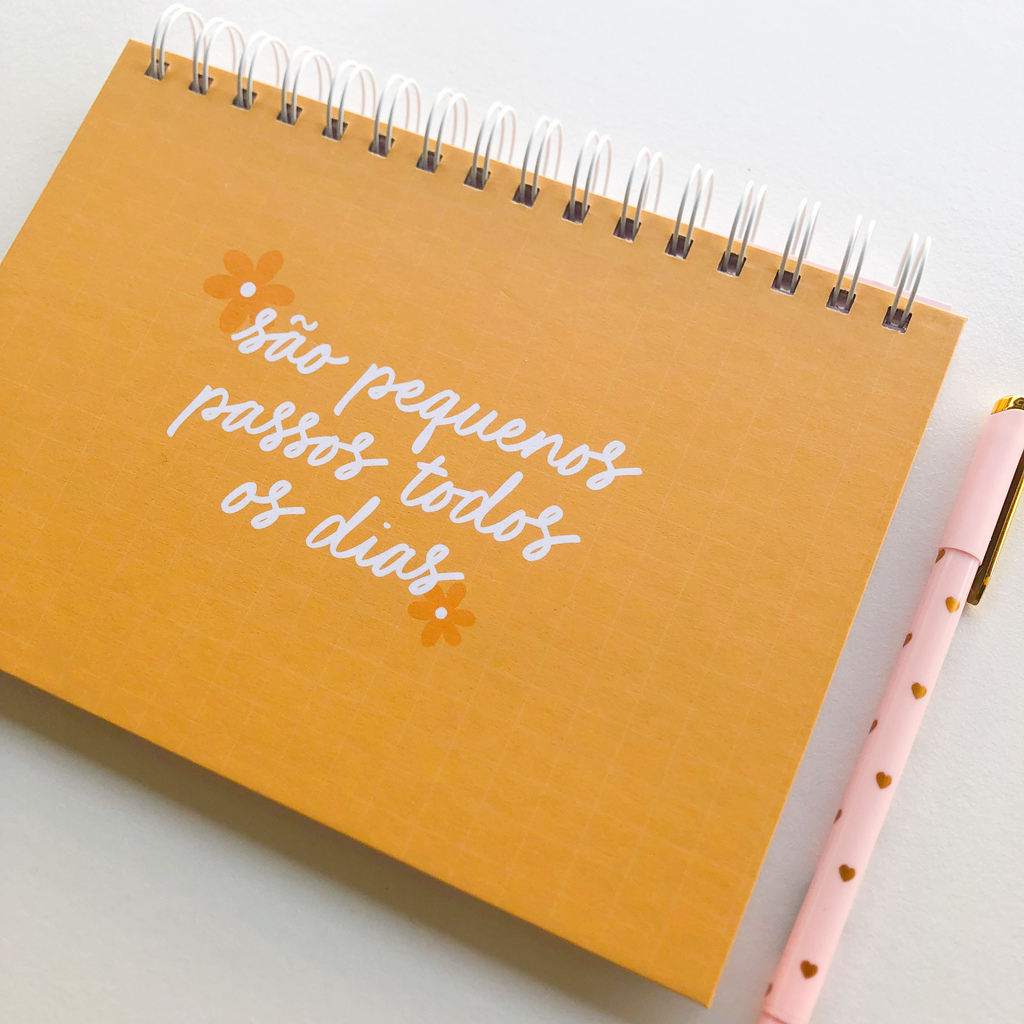 são pequenos
passos todos
os dias